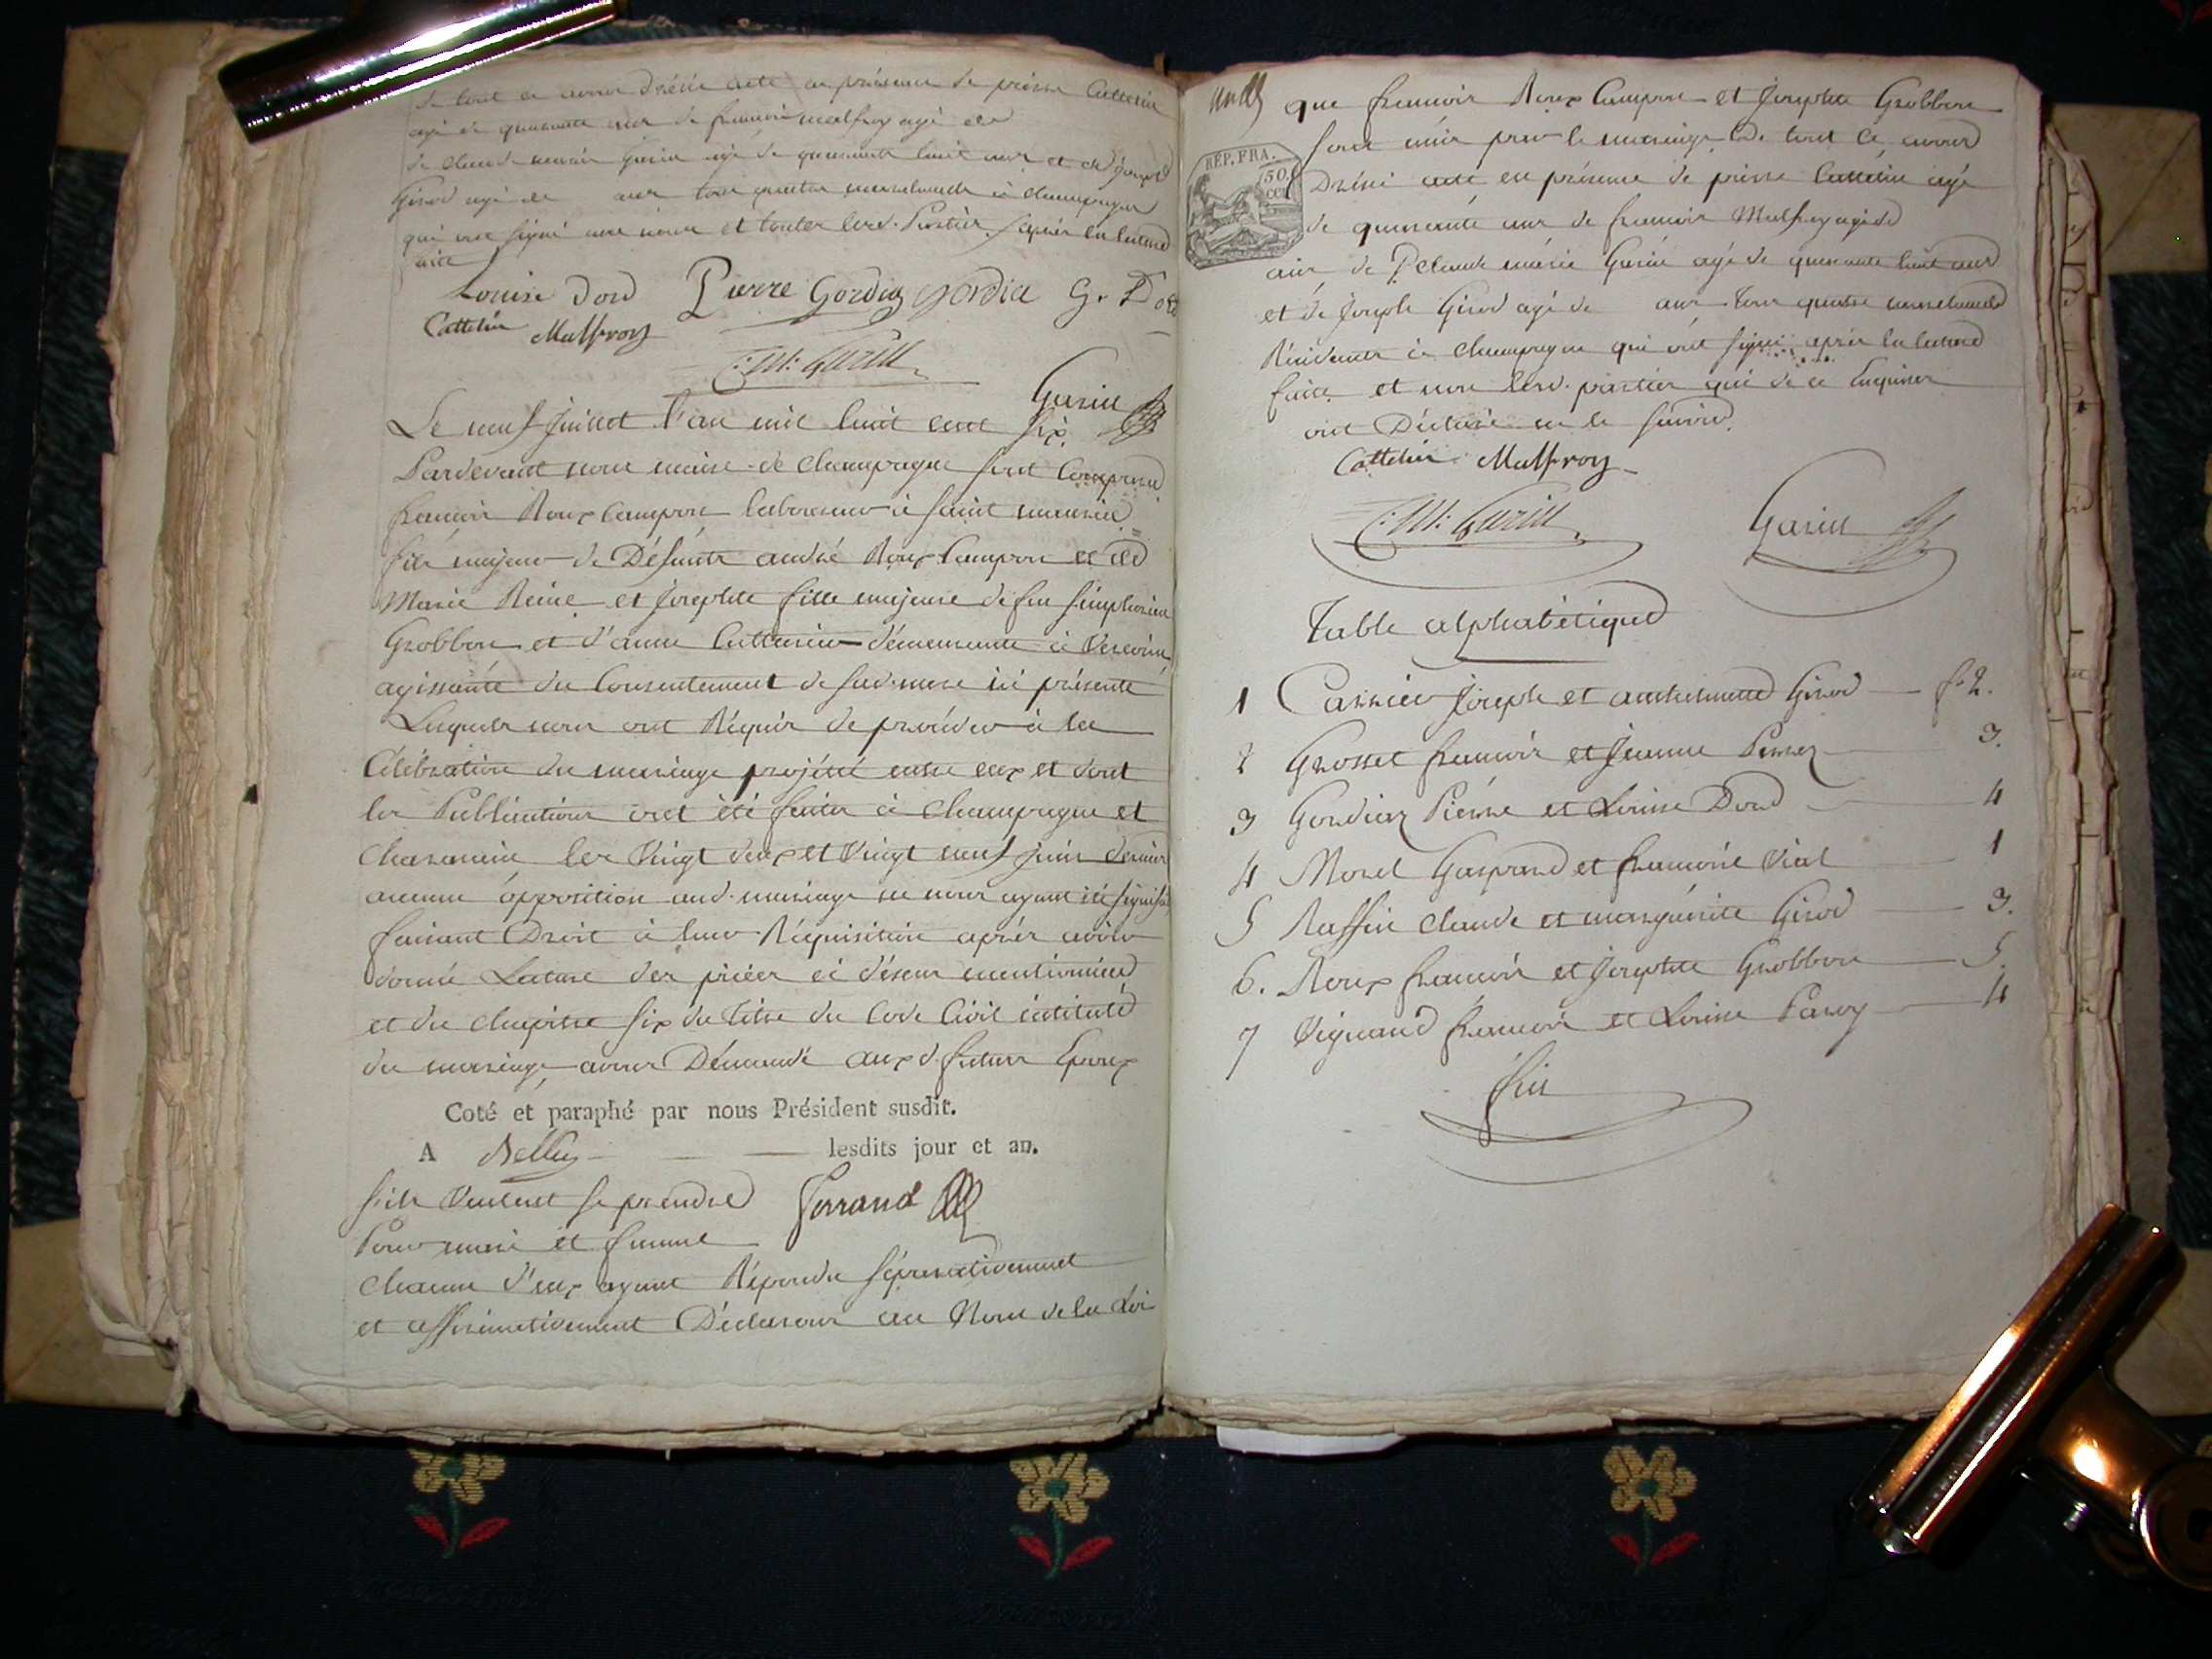 de tout ce avons Dréssé acte en présence de pierre Cattelin
agé de quarante ans de francois malfroy agé de
de claude marie Garin agé de quarante huit ans et de joseph
Girod agé de ans tous quatre à champagne
qui ont signé avec nous et toutes lesd. Parties. après lecture
faite
Louise Dord Pierre Gordiaz gordia G. Dord
Cattelin Malfroy
C: M: Garin
Garin
Le neuf juillet l'an mil huit cent six
Pardevant nous maire de champagne sont Comparu
francois Roux Campon laboureur à saint maurice
fils majeur de Défunts andré Roux Campon et de
Marie Reine et josephte fille majeure de feu simphorien
Grobbon et d'anne Cattanin demeurante à
agissante du Consentement de sad. mere ici présente
Lesquels nous ont Réquis de proceder à la
Célébration du mariage projetté entre eux et dont
les Publications ont été faites à champagne et
les Vingt deux et Vingt neuf juin dernier
aucune opposition aud. mariage ne nous ayant été signifiée
faisant Droit à leur Réquisition après avoir
donné Lecture des piéces ci désus mentionnées
et du chapitre six du titre du Code Civil intitulé
du mariage avons Démandé aux d. futurs Epoux
Coté et paraphé par nous Président susdit.
A Belley lesdits jour et an.
s'ils Veulent se prendre
Pour mari et femme
chacun d'eux ayant Répondu séparativement
et affirmativement Déclarons au Nom de la Loi
que francois Roux Campon et josephte Grobbon
sont unis par le mariage De tout Ce avons
RÉP. FRA.
50.
Dréssé acte en présence de pierre Cattelin agé
de quarante ans de francois Malfroy agé de
ans de claude marie Garin agé de quarante huit ans
et de joseph Girod agé de ans tous quatre
Résidants à champagne qui ont signé après la lecture
faite et non lesd. parties qui de ce Enquises
ont Déclaré ne le savoir.
Cattelin Malfroy
C: M: Garin Garin
Table alphabétique
1 Carrier joseph et Girod f. 2.
2 Grosset francois et jeanne Perret 3.
3 Gordiaz Pierre et Louise Dord 4
4 Morel Gaspard et francoise Vial 1
5 Raffin claude et marguérite Girod 3.
6. Roux francois et josephte Grobbon 5.
7 Vignand francois et Louise Parvy 4
fin